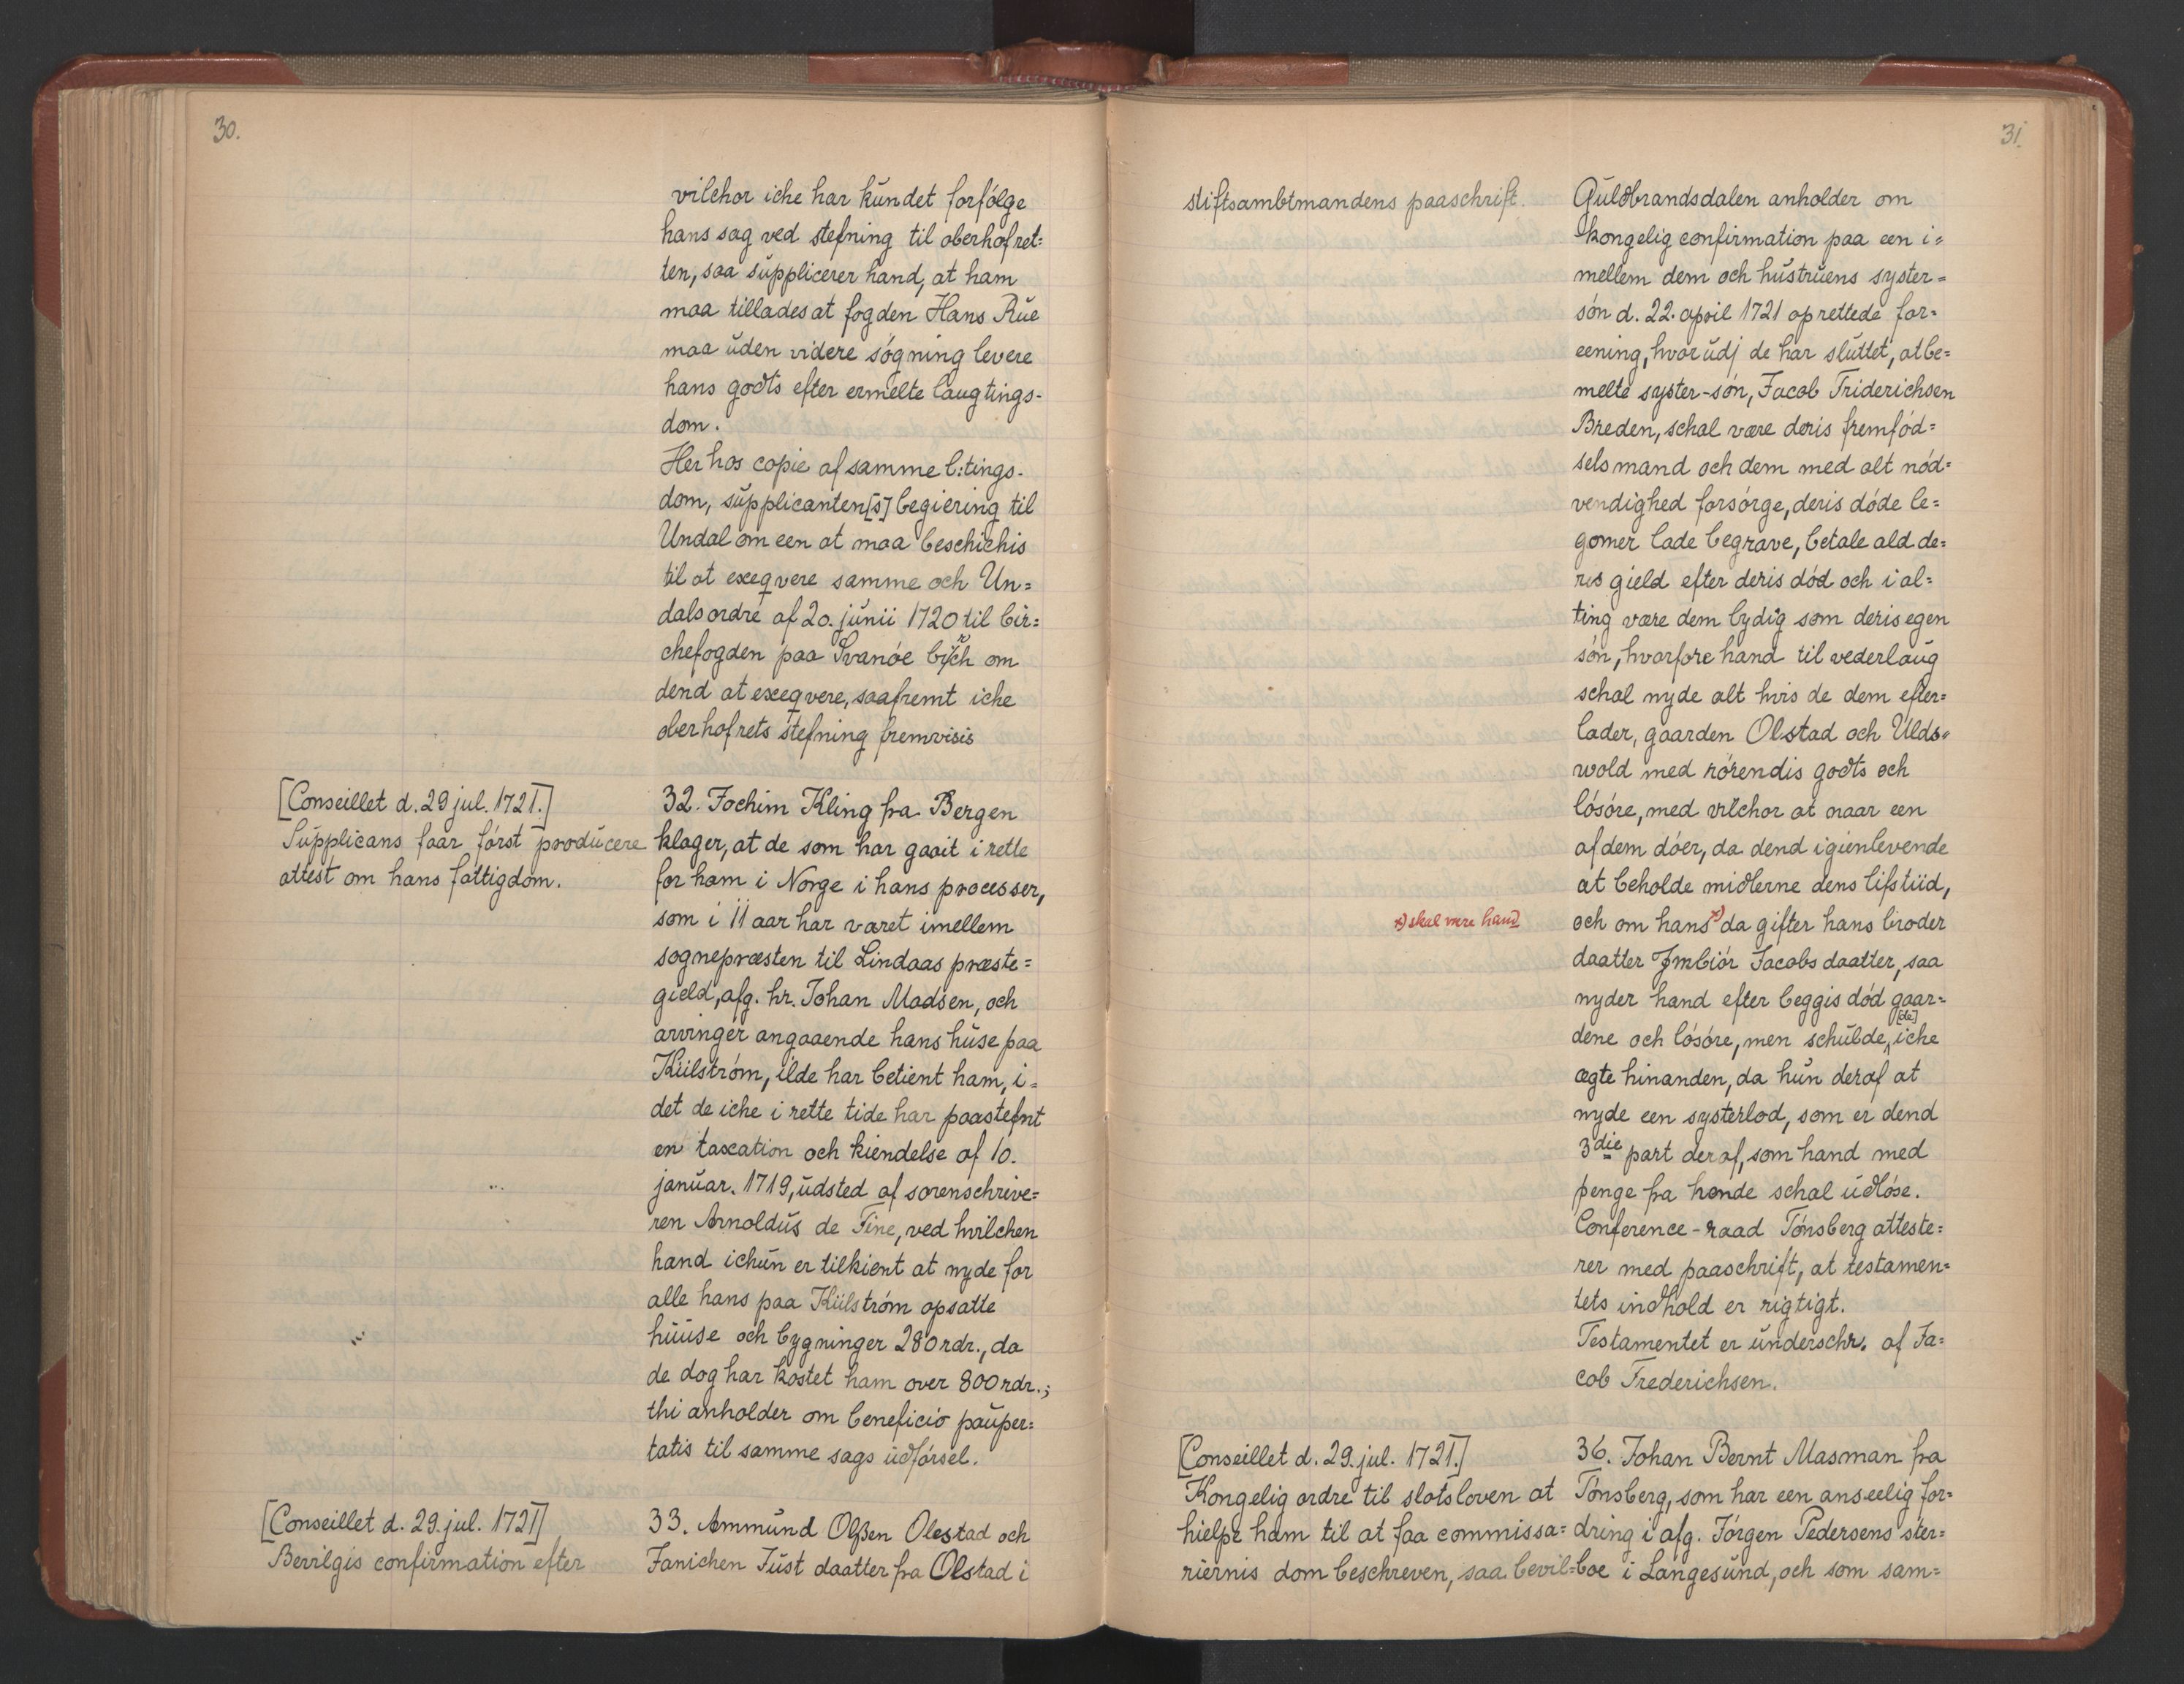 30.
vilchor iche har kundet forfölge
hans sag ved stefning til oberhofret=
ten, saa supplicerer hand, at ham
maa tillades at fogden Hans Rue
maa uden videre sögning levere
hans godts efter ermelte laugtings-
dom.
Her hos copie af samme l:tings-
dom, supplicanten[s] begiering til
Undal om een at maa beschichis
til at exeqvere samme och Un=
dals ordre af 20. junii 1720 til bir=
chefogden paa Svanöe birch om
dend at exeqvere, saafremt iche
oberhofrets stefning fremvisis
[Conseillet d. 29 jul. 1721.]
Supplicans faar först producere
attest om hans fattigdom.
32. Jochim Kling fra Bergen
klager, at de som har gaait i rette
for ham i Norge i hans processer,
som i 11 aar har været imellem
sognepræsten til Lindaas præste=
gield, afg. hr. Johan Madsen, och
arvinger angaaende hans huse paa
Kiilström, ilde har betient ham, i=
det de iche i rette tide har paastefnt
en taxation och kiendelse af 10.
januar. 1719, udsted af sorenschrive=
ren Arnoldus de Fine, ved hvilchen
hand ichun er tilkient at nyde for
alle hans paa Kiilström opsatte
huuse och bygninger 280 rdr., da
de dog har kostet ham over 800 rdr.;
thi anholder om beneficio pauper=
tatis til samme sags udförsel.
[Conseillet d. 29. jul. 1721]
Bevilgis confirmation efter
33. Ammund Olssen Olestad och
Janichen Just daatter fra Olstad i
31.
stiftsambtmandens paaschrift.
Guldbrandsdalen anholder om
kongelig confirmation paa een i=
mellem dem och hustruens syster=
sön d. 22. april 1721 oprettede for=
eening, hvorudj de har sluttet, at be=
melte syster-sön, Jacob Friderichsen
Breden, schal være deris fremföd=
selsmand och dem med alt nöd=
vendighed forsörge, deris döde le=
gomer lade begrave, betale ald de=
ris gield efter deris död och i al=
ting være dem lydig som deris egen
sön, hvorfore hand til vederlaug
schal nyde alt hvis de dem efter=
lader, gaarden Olstad och Ulds=
wold med rörendis godts och
lösöre, med vilchor at naar een
af dem döer, da dend igienlevende
at beholde midlerne dens lifstiid,
x) skal være hand
och om hans x) da gifter hans broder
daatter Jmbiör Jacobs daatter, saa
nyder hand efter beggis död gaar=
dene och lösöre, men schulde [de] iche
ægte hinanden, da hun deraf at
nyde een systerlod, som er dend
3die part deraf, som hand med
penge fra hende schal udlöse.
Conference-raad Tönsberg atteste=
rer med paaschrift, at testamen=
tets indhold er rigtigt.
Testamentet er underschr. af Ja=
cob Frederichsen.
[Conseillet d. 29. jul. 1721.]
Kongelig ordre til slotsloven at
hielpe ham til at faa commissa=
riernis dom beschreven, saa bevil=
36. Johan Bernt Masman fra
Tönsberg, som har een anseelig for=
dring i afg. Jörgen Pedersens ster=
boe i Langesund, och som sam=